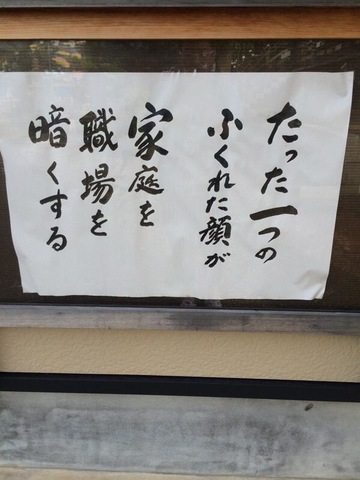 たった一つの
ふくれた顔が
家庭を
職場を
暗くする